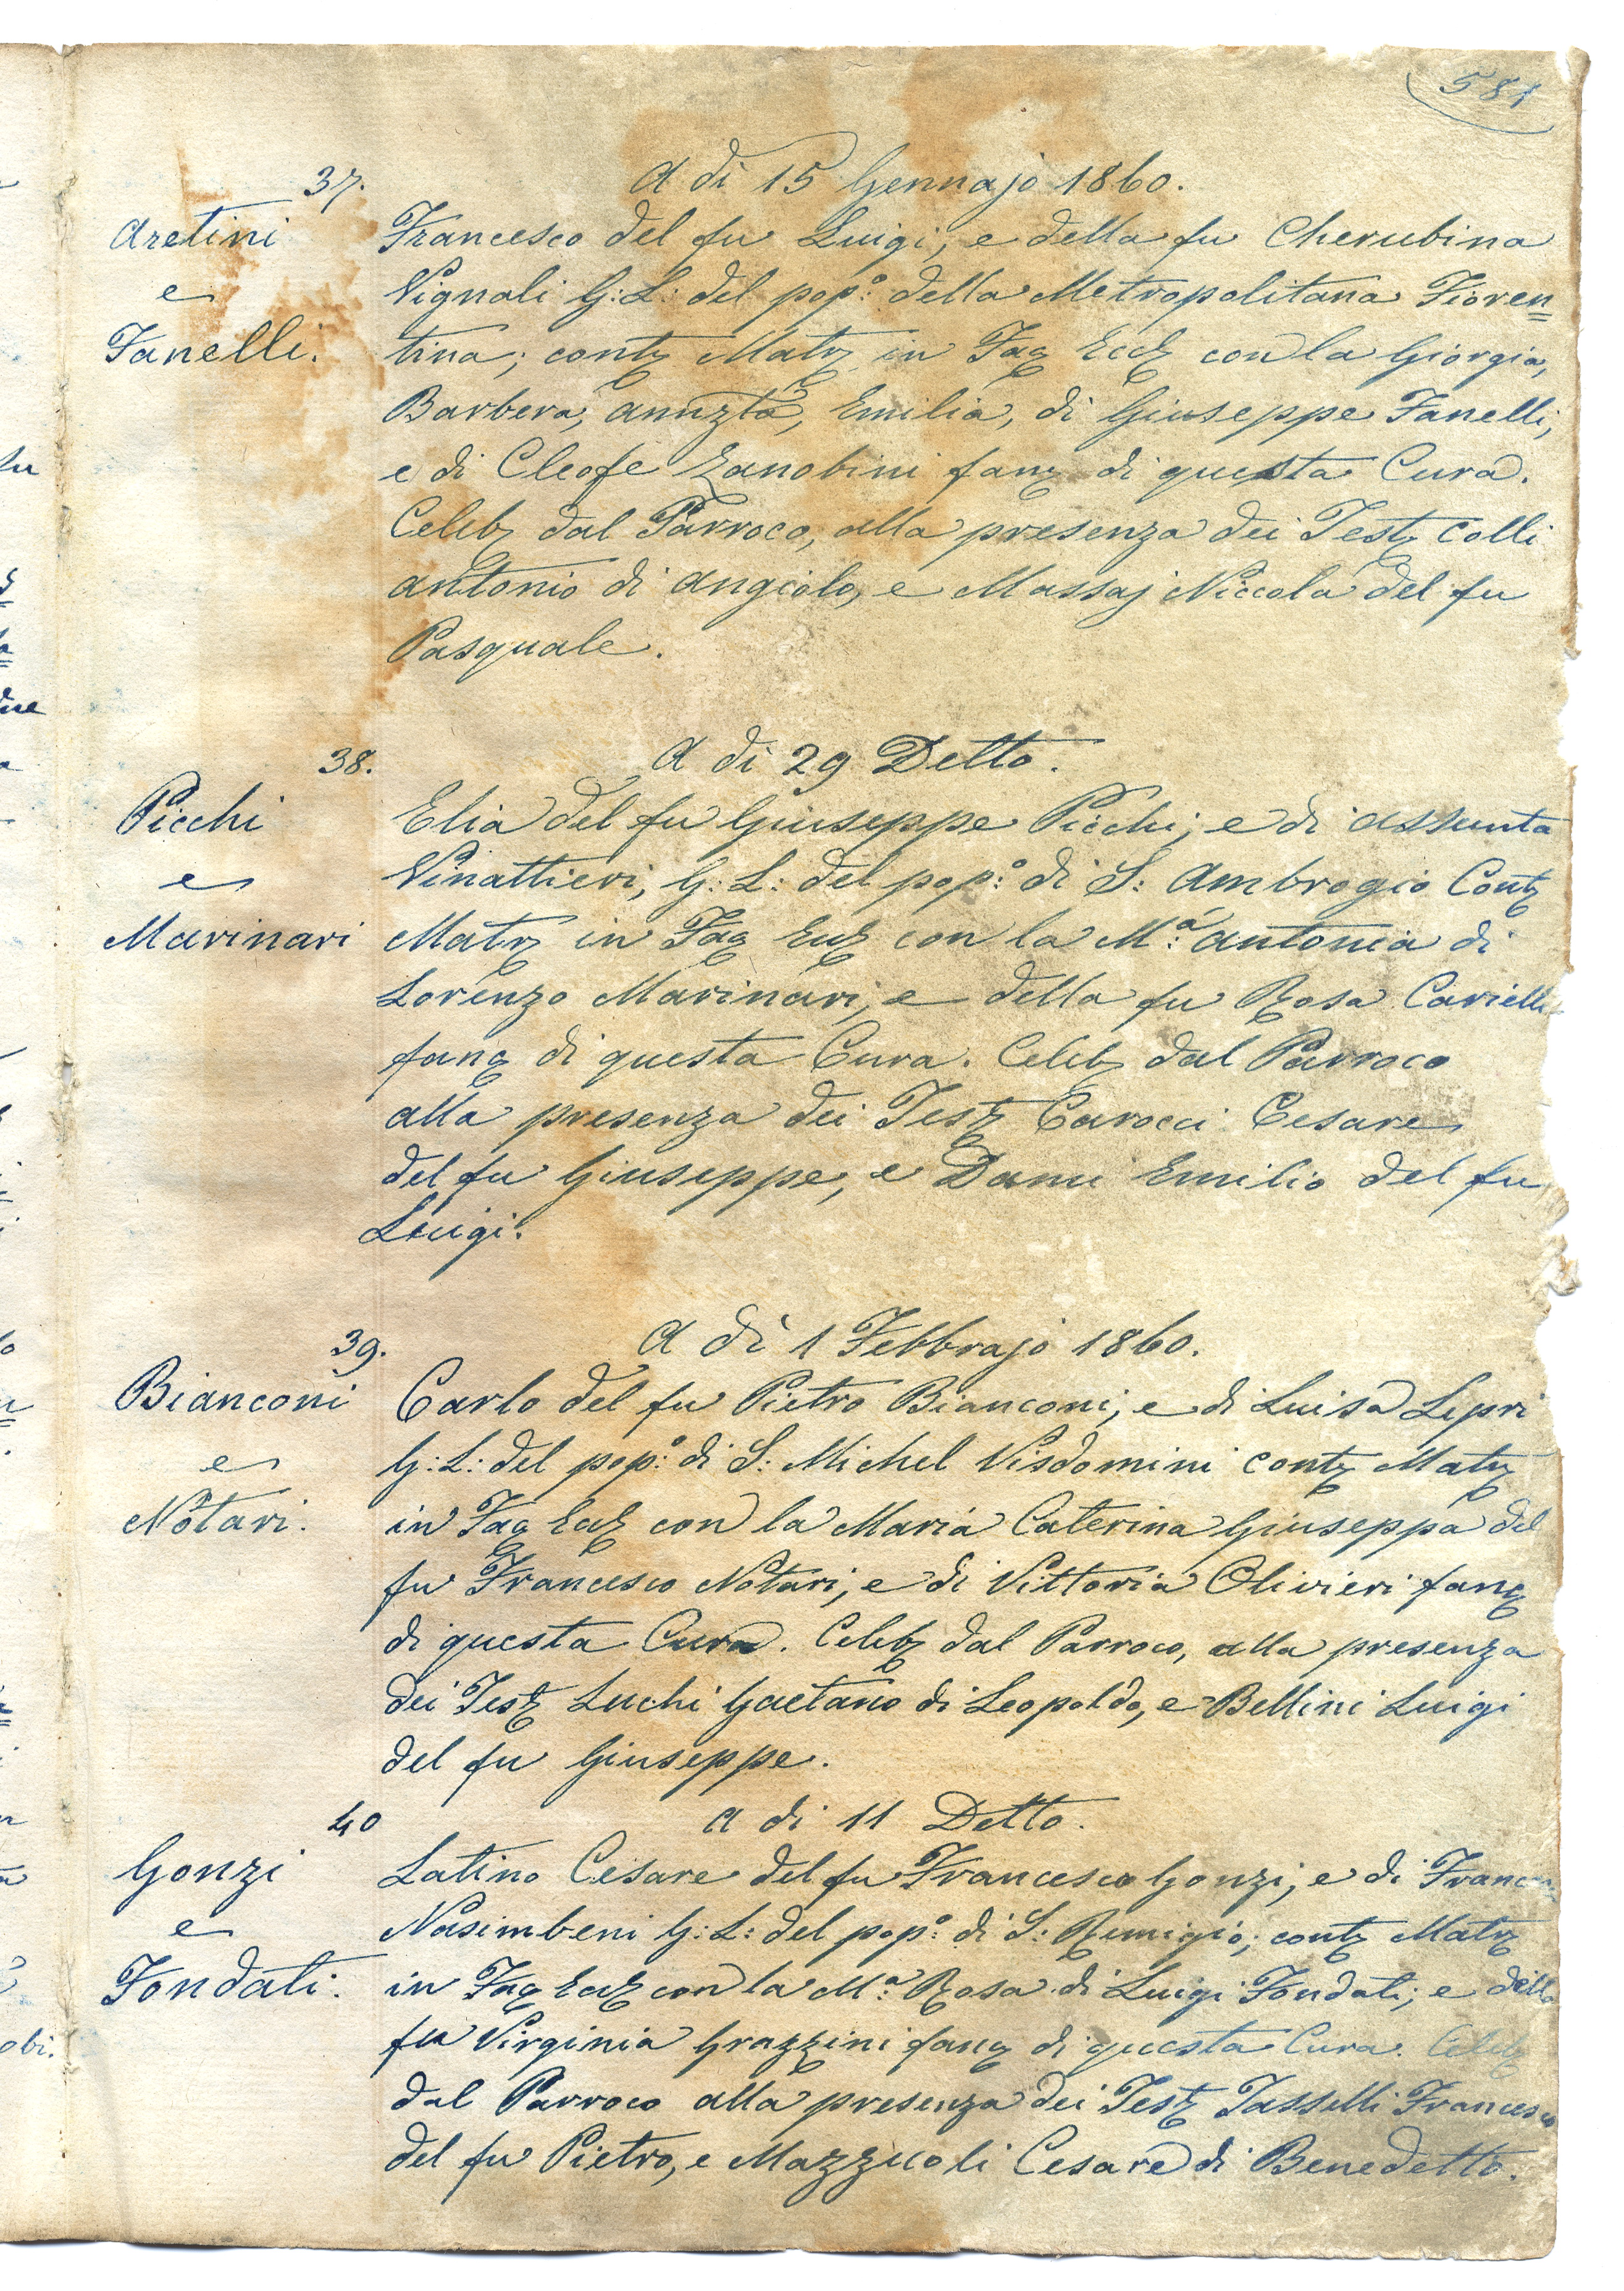 581
37. A dì 15 Gennajo 1860.
Aretini Francesco del fu Luigi, e della fu Cherubina
e Vignali G: L: del pop:° della Metropolitana Fioren=
Fanelli. tina; contz Matz in Faz Eccz con la Giorgia,
Barbera, Annzta, Emilia, di Giuseppe Fanelli,
e di Cleofe Zanobini fanz di questa Cura.
Celebz dal Parroco, alla presenza dei Testz Colli
Antonio di Angiolo, e Massaj Niccola del fu
Pasquale.
38. A dì 29 Detto.
Picchi Elia del fu Giuseppe Picchi; e di Assunta
e Vinattieri, G: L: del pop:° di S: Ambrogio Contz
Marinari Matz in Faz Eccz con la M:ª Antonia di
Lorenzo Marinari, e della fu Rosa Carielli
fanz di questa Cura. Celebz dal Parroco
alla presenza dei Testz Carocci Cesare
del fu Giuseppe, e Dami Emilio del fu
Luigi.
39. A dì 1 Febbrajo 1860.
Bianconi Carlo del fu Pietro Bianconi, e di Luisa Lepri
e G: L: del pop:° di S: Michel Visdomini contz Matz
Notari. in Faz Eccz con la Maria Caterina Giuseppa del
fu Francesco Notari, e di Vittoria Olivieri fanz
di questa Cura. Celebz dal Parroco, alla presenza
dei Testz Luchi Gaetano di Leopoldo, e Bellini Luigi
del fu Giuseppe.
40 A dì 11 Detto.
Gonzi Latino Cesare del fu Francesco Gonzi, e di
e Nasimbeni G: L: del pop:° di S: Remigio; contz Matz
Fondati. in Faz Eccz con la M:ª Rosa di Luigi Fondati; e della
fu Virginia Grazzini fanz di questa Cura. Celebz
dal Parroco alla presenza dei Testz Tasselli Francesco
del fu Pietro, e Mazzuoli Cesare di Benedetto.